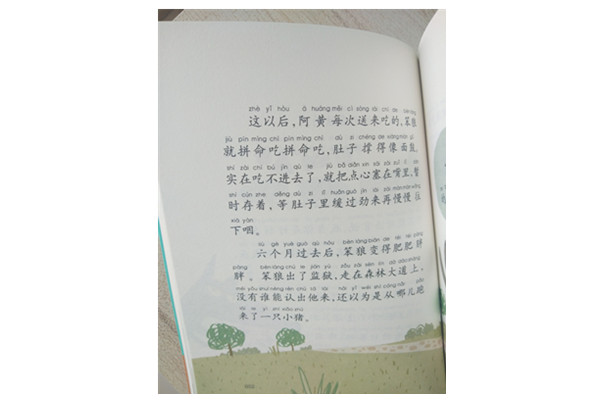 zhè yǐ hòu ā huáng měi cì sòng lái chī de bèn láng
这以后，阿黄每次送来吃的，笨狼
jiù pīn mìng chī pīn mìng chī dù zi chēng de xiàng miàn gǔ
就拼命吃拼命吃，肚子撑得像面鼓，
shí zài chī bú jìn qù le jiù bǎ diǎn xin sāi zài zuǐ lǐ zàn
实在吃不进去了，就把点心塞在嘴里，暂
shí cún zhe děng dù zi lǐ huǎn guò jìn lái zài màn màn wǎng
时存着，等肚子里缓过劲来再慢慢往
xià yàn
下咽。
liù gè yuè guò qù hòu bèn láng biàn de féi féi pàng
六个月过去后，笨狼变得肥肥胖
pàng bèn láng chū le jiān yù zǒu zài sēn lín dà dào shàng
胖。笨狼出了监狱，走在森林大道上，
méi yǒu shuí néng rèn chū tā lái hái yǐ wéi shì cóng nǎr pǎo
没有谁能认出他来，还以为是从哪儿跑
lái le yì zhī xiǎo zhū
来了一只小猪。